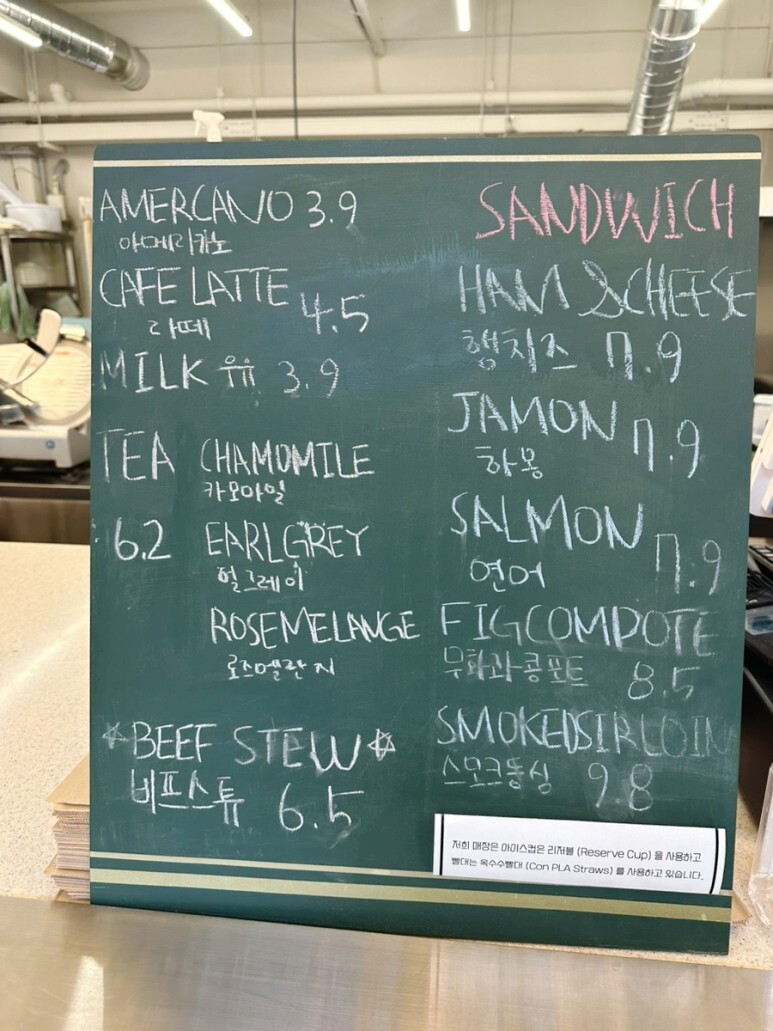 AMERCANO 3.9
아메리카노
CAFE LATTE 4.5
라떼
MILK 우유 3.9
TEA CHAMOMILE
카모마일
6.2 EARLGREY
얼그레이
ROSEMELANGE
로즈멜란지
☆BEEF STEW☆
비프스튜 6.5
SANDWICH
HAM & CHEESE
햄치즈 7.9
JAMON 7.9
하몽
SALMON 7.9
연어
FIGCOMPOTE
무화과콩포트 8.5
SMOKEDSIRLOIN
스모크등심 9.8
저희 매장은 아이스컵은 리저블 (Reserve Cup) 을 사용하고
빨대는 옥수수빨대 (Con PLA Straws) 를 사용하고 있습니다.